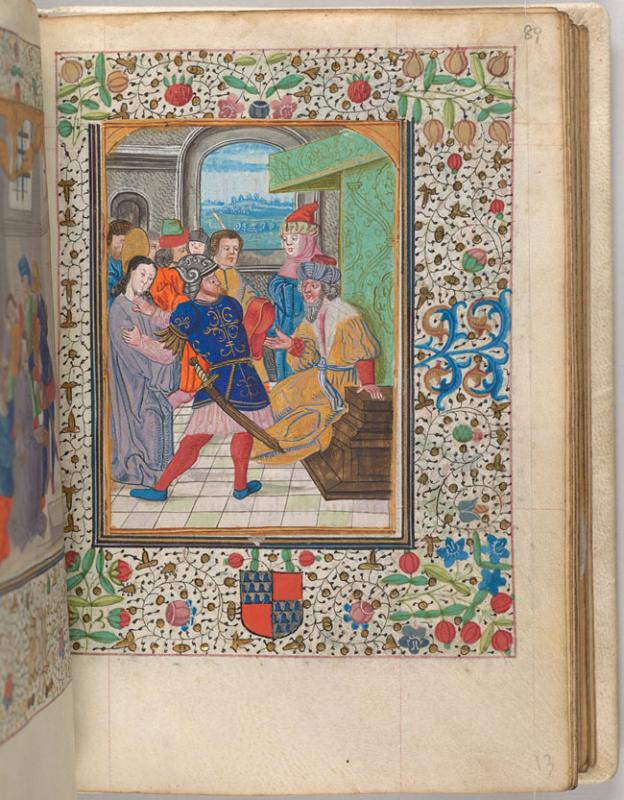 89
13